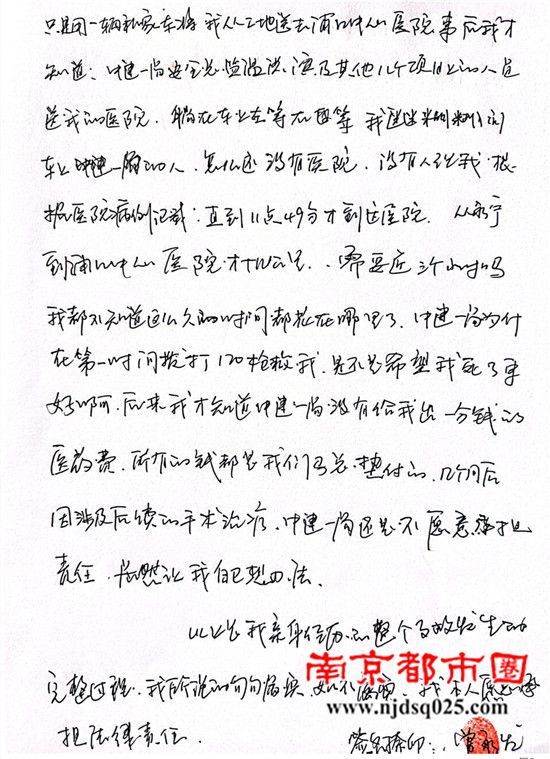 只是用一辆私家车将我从工地送去浦口中心医院事后我才
知道：中建一局安全总监温洪渲及其他几个项目上的人员
送我的医院．躺在车上左等右等 我迷迷糊糊的问
车上中建一局的人．怎么还没有医院．没有人理我．根
据医院病例记载：直到11点49分才到达医院．从永宁
到浦口中心医院才十公里．．需要近三个小时吗
我都不知道这么久的时间都花在哪里了．中建一局为什
在第一时间拨打120抢救我．是不是希望我死了更
好啊阿．后来我才知道中建一局没有给我出一分钱的
医药费．所有的钱都是我们马总垫付的．几个月后
因涉及后续的手术治疗．中建一局还是不愿意承担
责任．居然让我自己想办法．
以上是我亲身经历的整个事故发生的
完整过程．我所说的句句属实．如不属实．我本人愿意承
担法律责任． 签名捺印：曾
南京都市圈
www.njdsq025.com